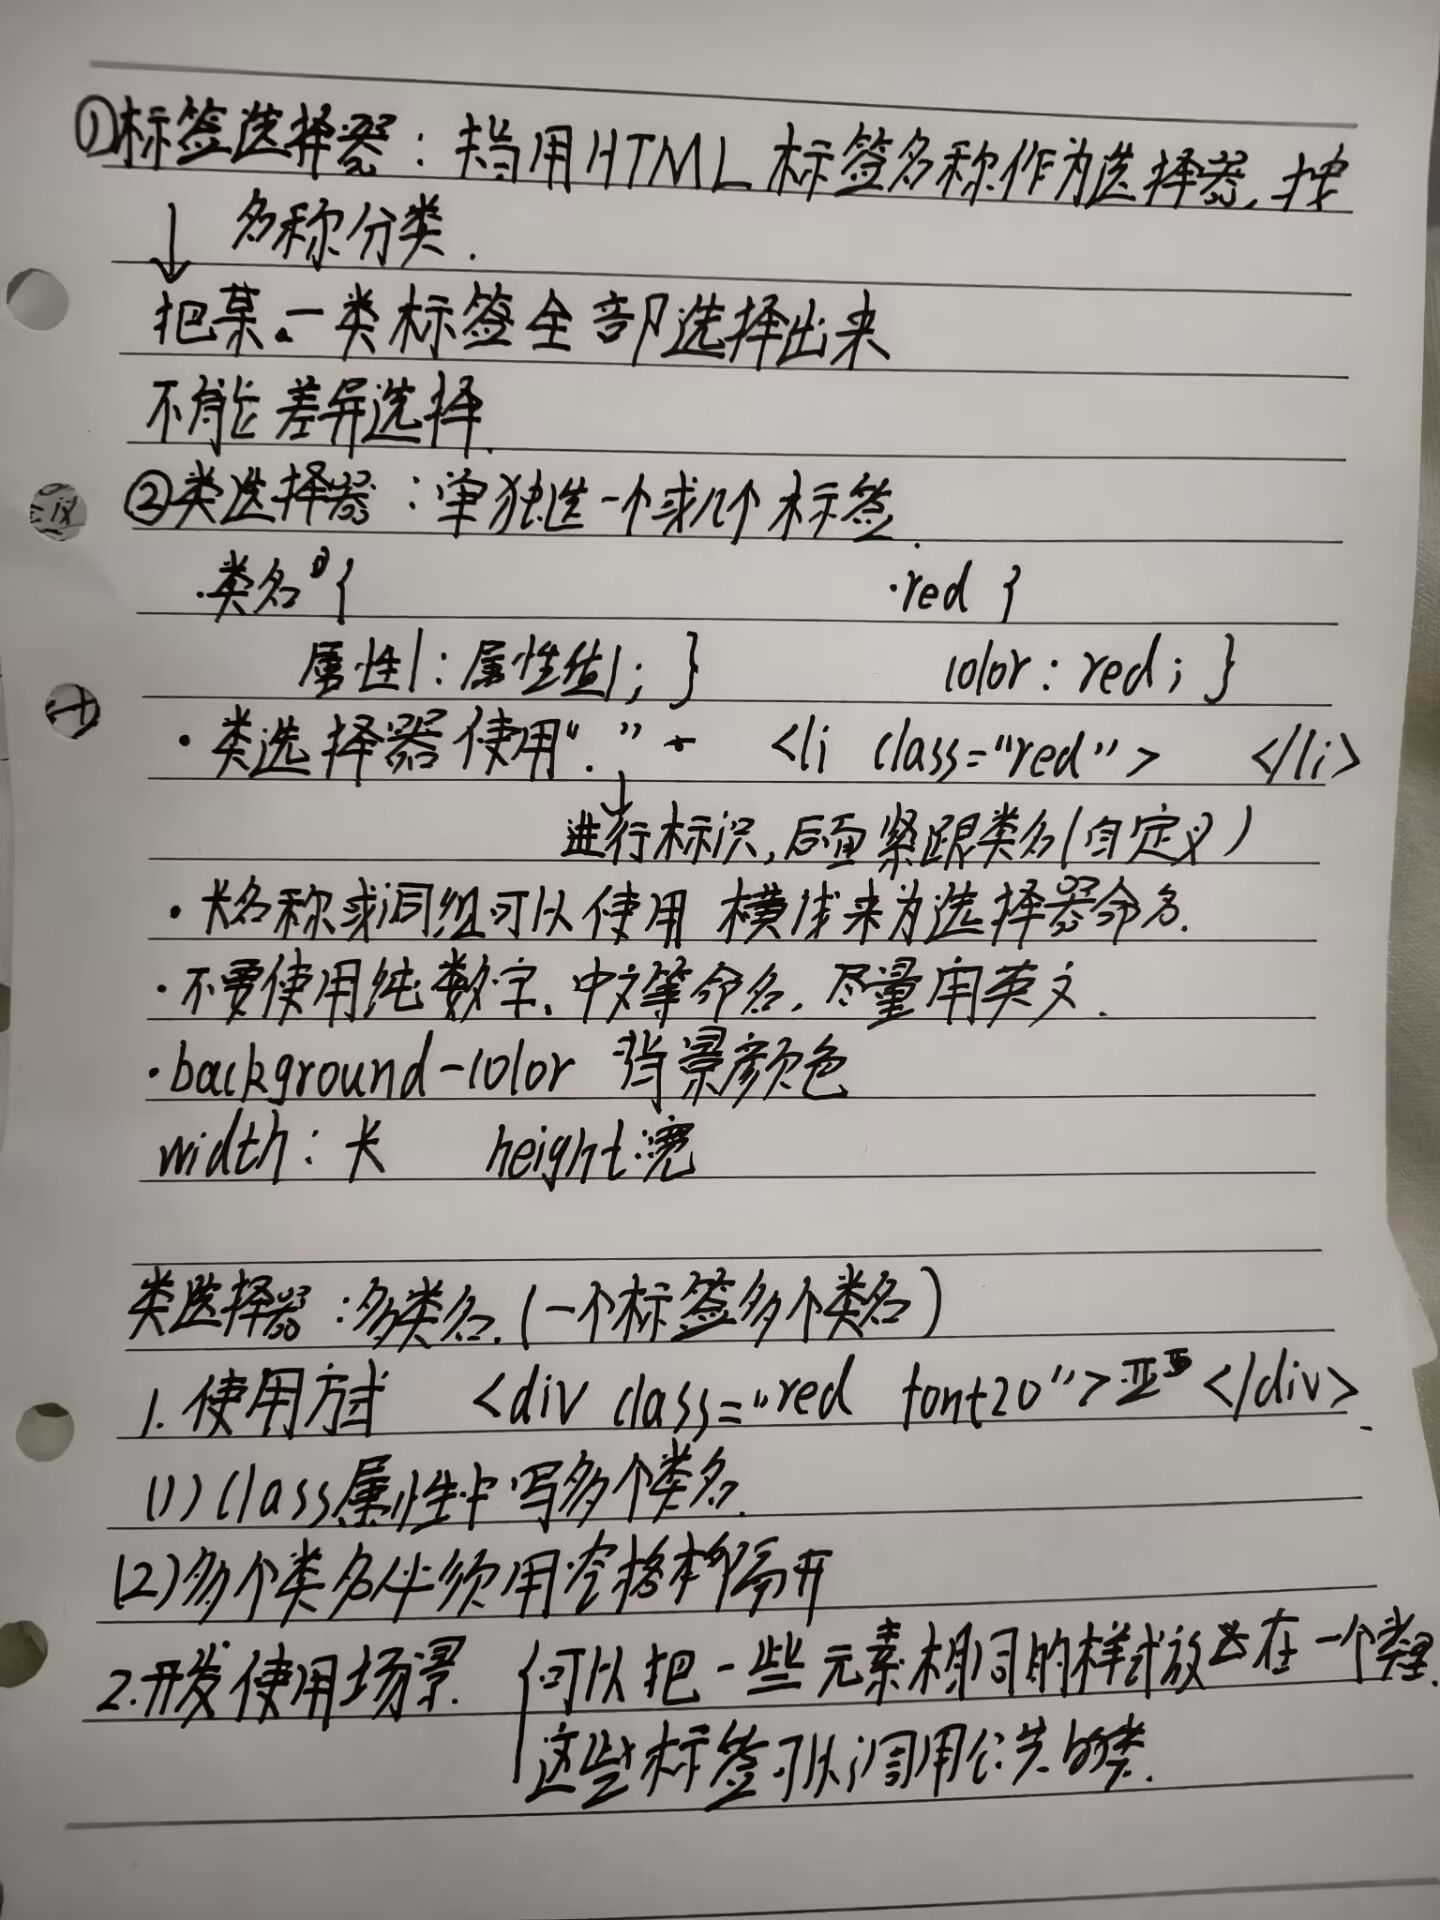 ①标签选择器：指用HTML 标签名称作为选择器，按
名称分类.
↓
把某一类标签全部选择出来
不能差异选择.
②类选择器：单独选一个或几个标签.
.类名 { .red {
属性1：属性值1；} color：red；}
·类选择器使用“.” <li class="red"> </li>
↓
进行标识，后面紧跟类名(自定义)
·长名称或词组可以使用 横线来为选择器命名.
·不要使用纯数字、中文等命名，尽量用英文.
·background-color 背景颜色
width：长 height：宽
类选择器：多类名.(一个标签多个类名)
1.使用方式 <div class="red font20">亚 </div>
(1)class属性中写多个类名.
(2)多个类名必须用空格隔开
2.开发使用场景. {可以把一些元素相同的样式放在一个类里.
这些标签可以调用公共的类.